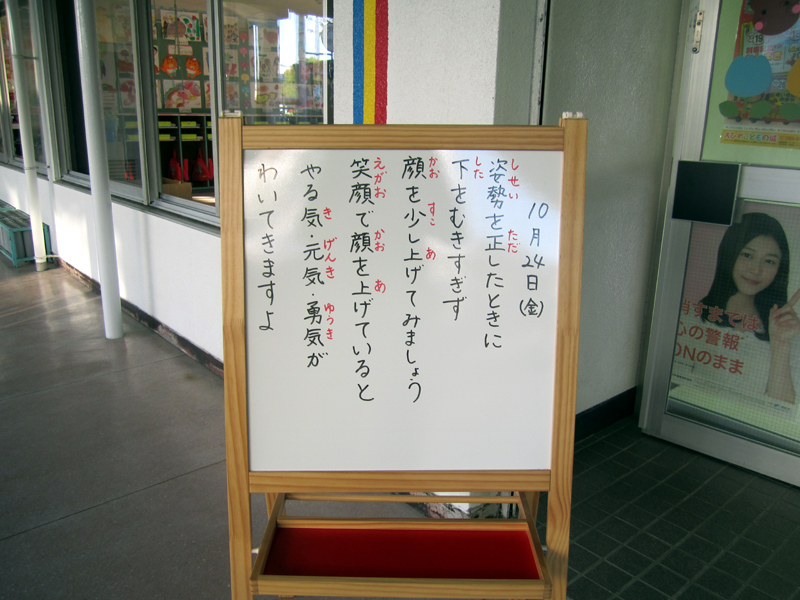 10月24日(金)
姿勢を正したときに
しせい ただ
下をむきすぎず
した
顔を少し上げてみましょう
かお すこ あ
笑顔で顔を上げていると
えがお かお あ
やる気・元気・勇気が
き げんき ゆうき
わいてきますよ
消すまでは
心の警報
ONのまま